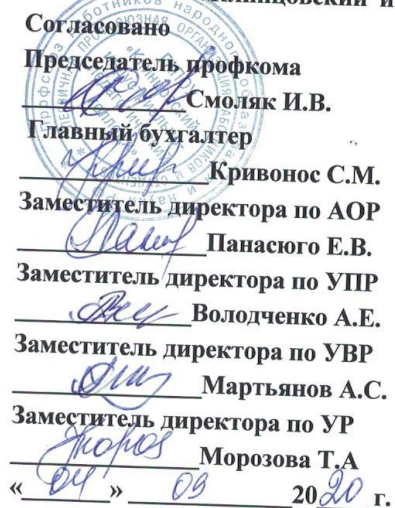 Согласовано
Председатель профкома
Смоляк И.В.
Главный бухгалтер
Кривонос С.М.
Заместитель директора по АОР
Панасюго Е.В.
Заместитель директора по УПР
Володченко А.Е.
Заместитель директора по УВР
Мартьянов А.С.
Заместитель директора по УР
Морозова Т.А
« 04 » 09 2020 г.